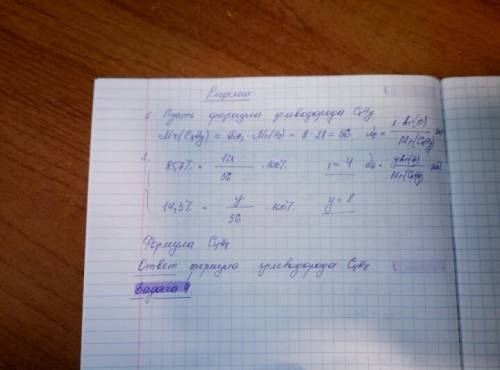 Решение
1. Пусть формула углеводорода CxHy
Mr(CxHy) = · Mr( ) = 2 · 28 = 56 = x · Ar(C) / Mr(CxHy)
2. 85,7% = 12x / 56 · 100% x = 4 = yAr( ) / Mr(CxHy)
14,3% = y / 56 · 100% y = 8
Формула C4H8
Ответ формула углеводорода C4H8
Задача 4